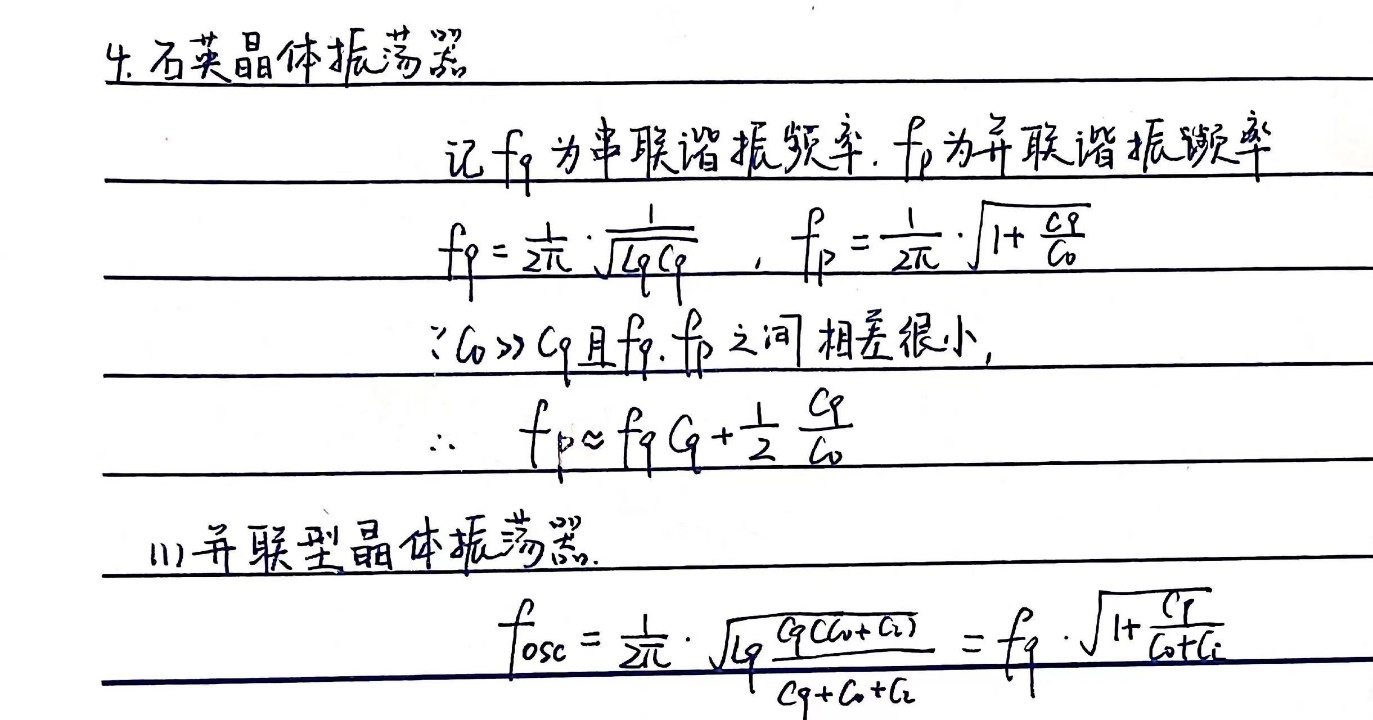 4. 石英晶体振荡器
记 fq 为串联谐振频率. fp 为并联谐振频率
fq = 1/2π · 1/√(LqCq) , fp = 1/2π · √(1 + Cq/C0)
∵ C0 >> Cq 且 fq. fp 之间相差很小,
∴ fp ≈ fq Cq + 1/2 Cq/C0
(1) 并联型晶体振荡器.
fosc = 1/2π · √(Lq Cq(C0+C2)/(Cq+C0+C2)) = fq · √(1 + Cq/(C0+CL))